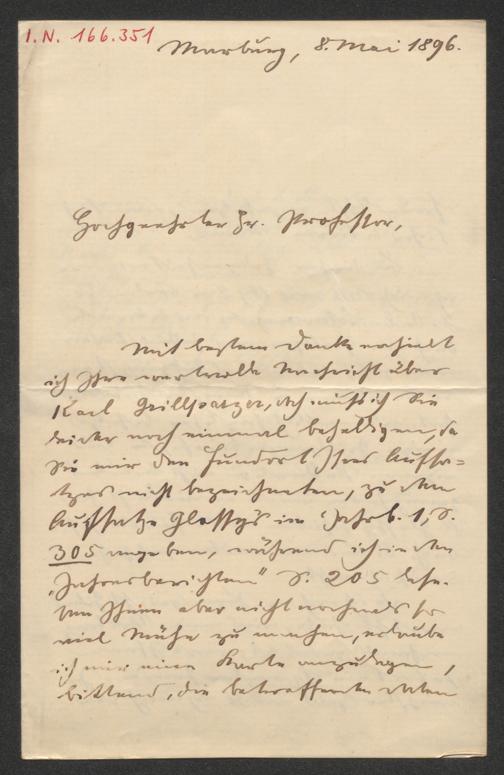 I.N. 166.351
Marburg, 8. Mai 1896.
Hochgeehrter Hr. Professor,
Mit bestem Danke erhielt
ich Ihre wertvolle Nachricht über
Karl Grillparzer, doch muß ich Sie
leider noch einmal behelligen, da
Sie mir den Fundort Ihres Aufsa-
tzes nicht bezeichneten, zu dem
Aufsatze Glossys im Jahrb. 1, S.
305 angeben, während ich in den
„Jahresberichten" S. 205 lese.
Um Ihnen aber nicht nochmals so
viel Mühe zu machen, erlaube
ich mir eine Karte anzulegen,
bittend, die betreffenden Daten